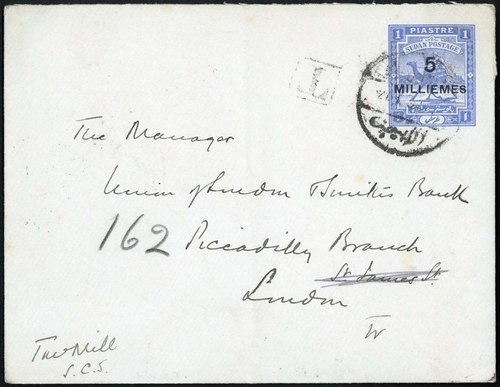 PIASTRE
1 1
SUDAN POSTAGE
5
MILLIEMES
1 1
T
The Manager
Union of London & Smiths Bank
162 Piccadilly Branch
St. James St.
London
W
S.C.S.